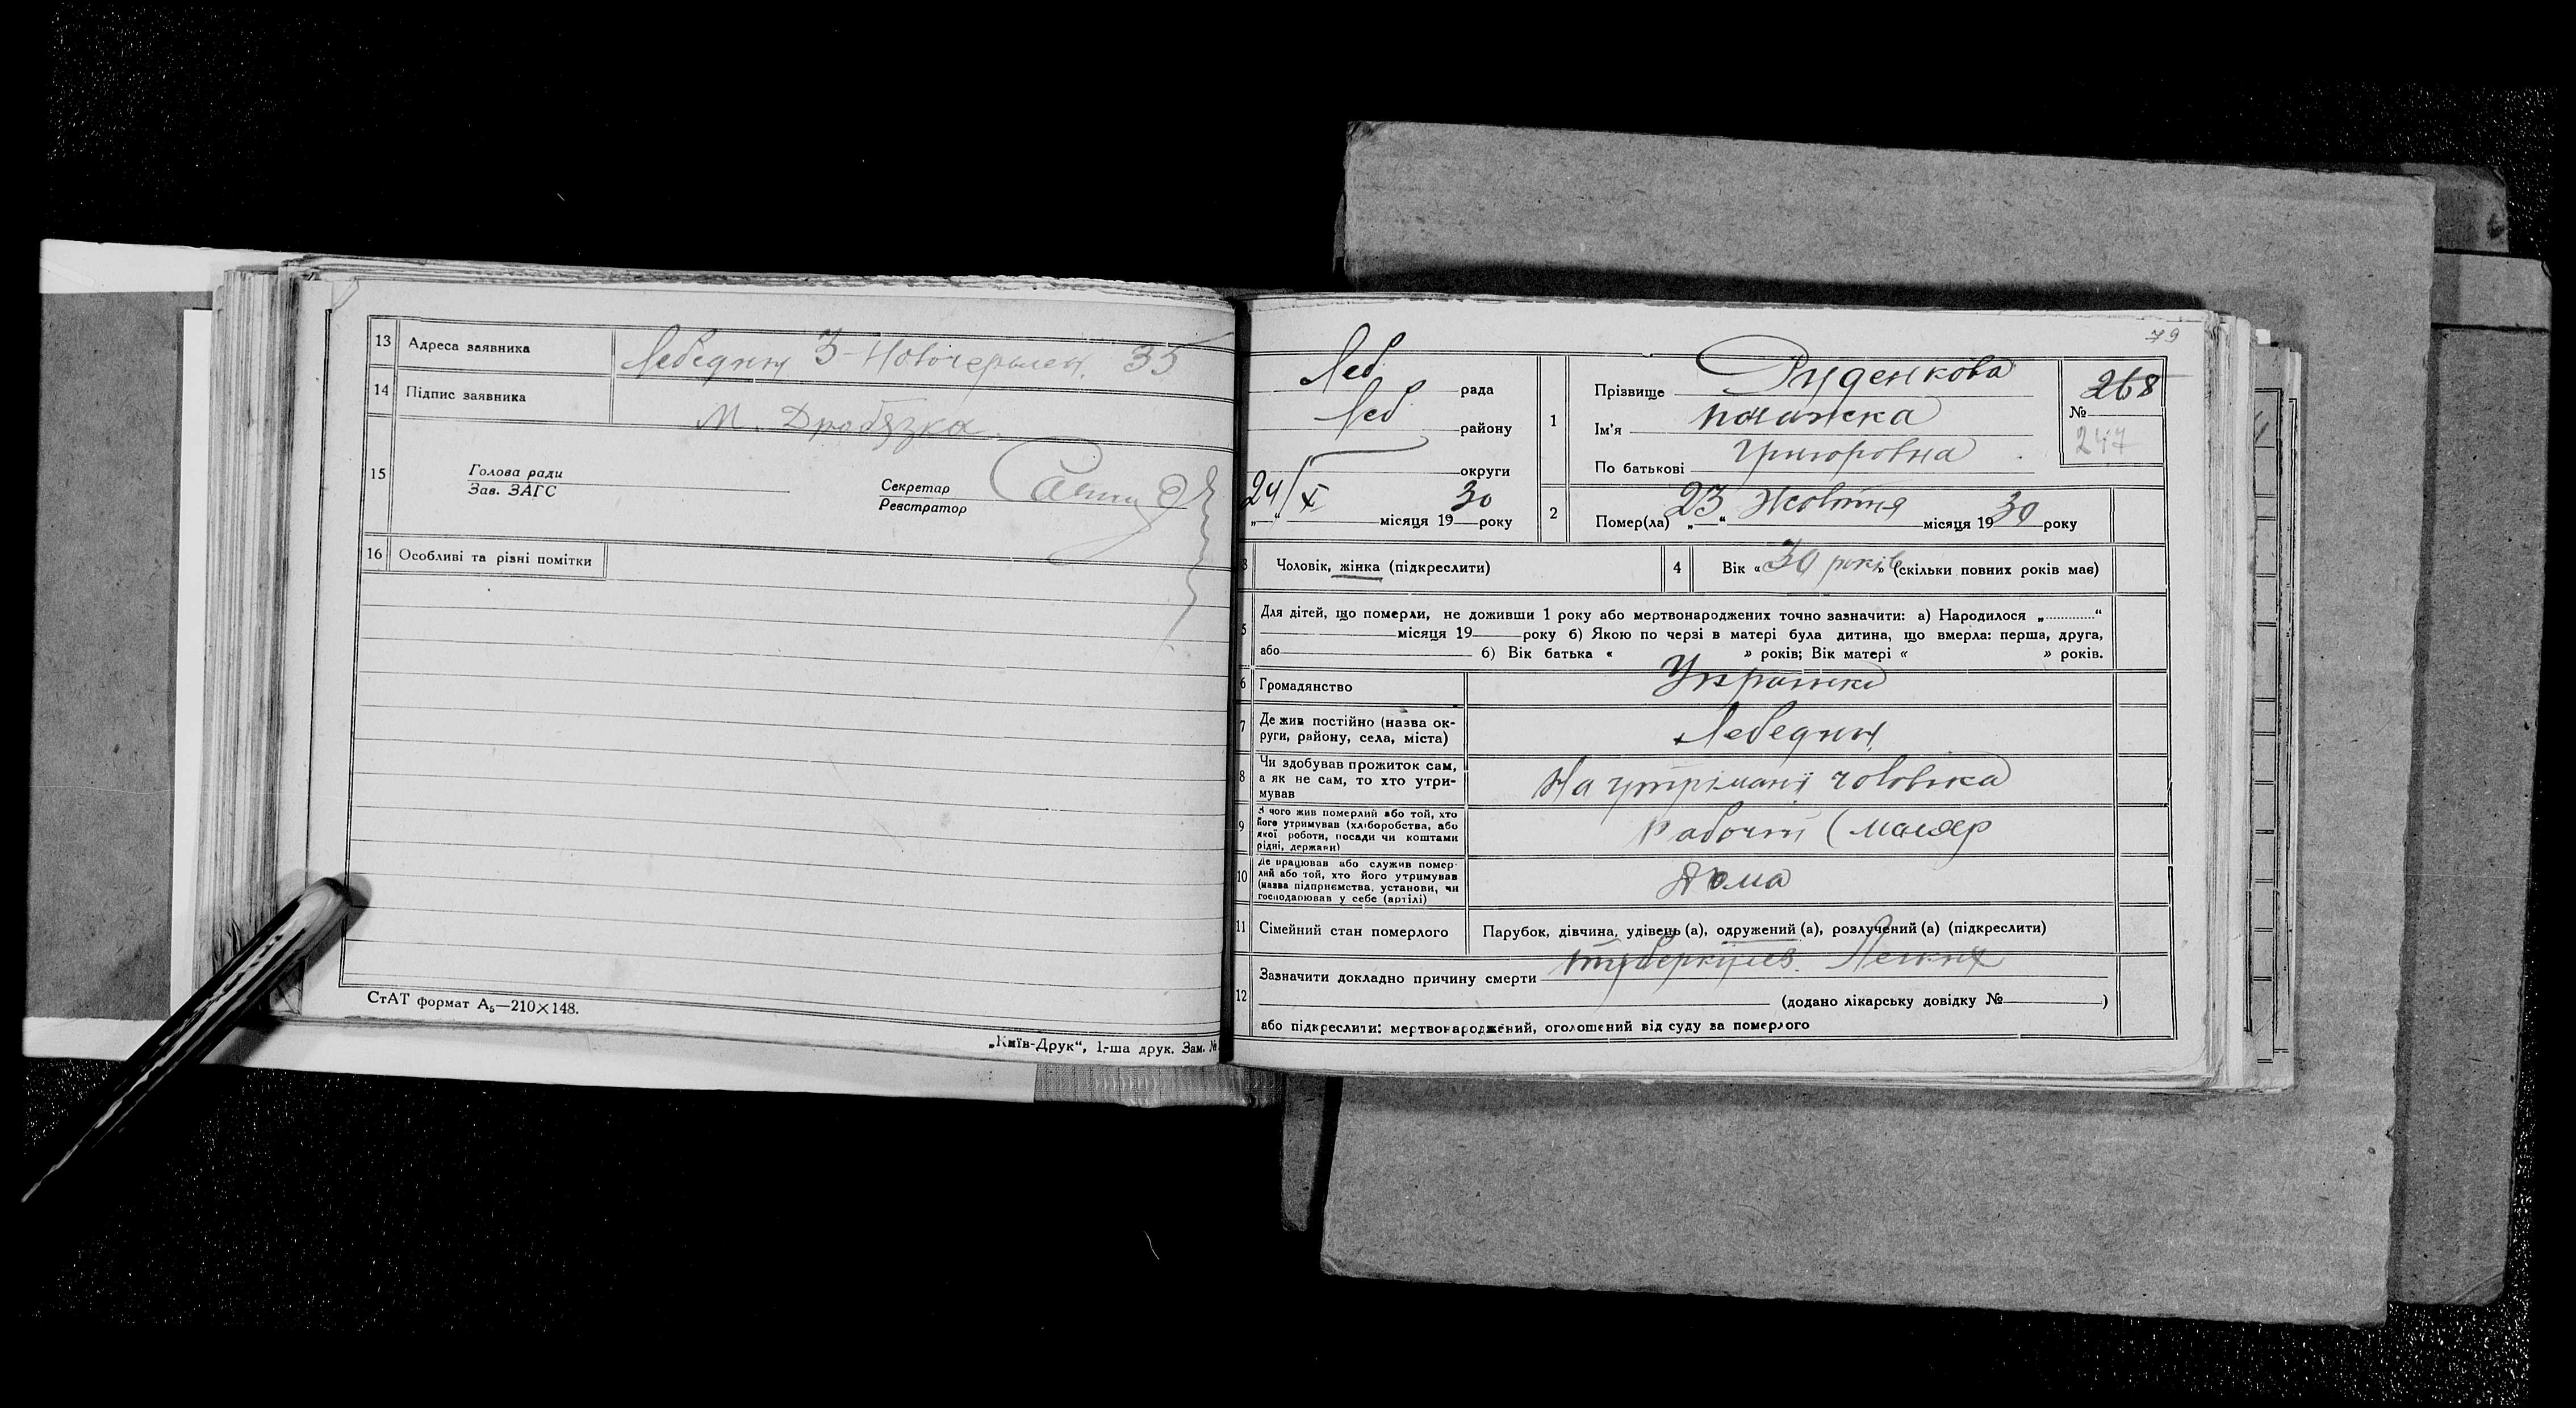 13 Адреса заявника Лебедин 3-Новочермен. 35
14 Підпис заявника М. Дробязка
15 Голова ради
Зав. ЗАГС
Секретар
Реєстратор
16 Особливі та різні помітки
СтАТ формат А₅—210×148.
„Київ-Друк“, 1-ша друк. Зам. №
79
Леб рада
Леб району
округи
24/X місяця 1930 року
1 Прізвище Руденкова
Ім'я
По батькові Григоровна
268
№
247
2 Помер(ла) „23“ Жовтня місяця 1930 року
3 Чоловік, жінка (підкреслити)
4 Вік «30 років» (скільки повних років має)
5 Для дітей, що померли, не доживши 1 року або мертвонароджених точно зазначити: а) Народилося „............“
місяця 19 року б) Якою по черзі в матері була дитина, що вмерла: перша, друга,
або б) Вік батька « » років; Вік матері « » років.
6 Громадянство Украинка
7 Де жив постійно (назва ок-
руги, району, села, міста) Лебедин
8 Чи здобував прожиток сам,
а як не сам, то хто утри-
мував На утріманні чоловіка
9 З чого жив померлий або той, хто
його утримував (хліборобства, або
якої роботи, посади чи коштами
рідні, держави) Рабочий (маляр
10 Де працював або служив помер-
лий або той, хто його утримував
(назва підприємства, установи, чи
господарював у себе (артілі) Дома
11 Сімейний стан померлого Парубок, дівчина, удівець (а), одружений (а), розлучений (а) (підкреслити)
12 Зазначити докладно причину смерти туберкульоз Легких
(додано лікарську довідку № )
або підкреслити: мертвонароджений, оголошений від суду за померлого